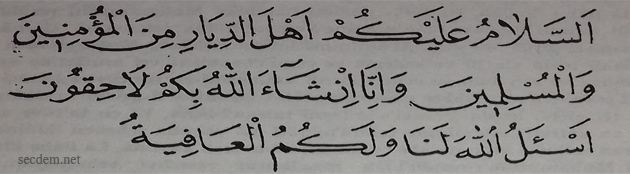 اَلسَّلَامُ عَلَيْكُمْ اَهْلَ الدِّيَارِ مِنَ الْمُؤْمِنِينَ
وَالْمُسْلِمِينَ وَاِنَّا اِنْشَآءَ اللّٰهُ بِكُمْ لَاحِقُونَ
اَسْئَلُ اللّٰهَ لَنَا وَلَكُمُ الْعَافِيَةَ
secdem.net